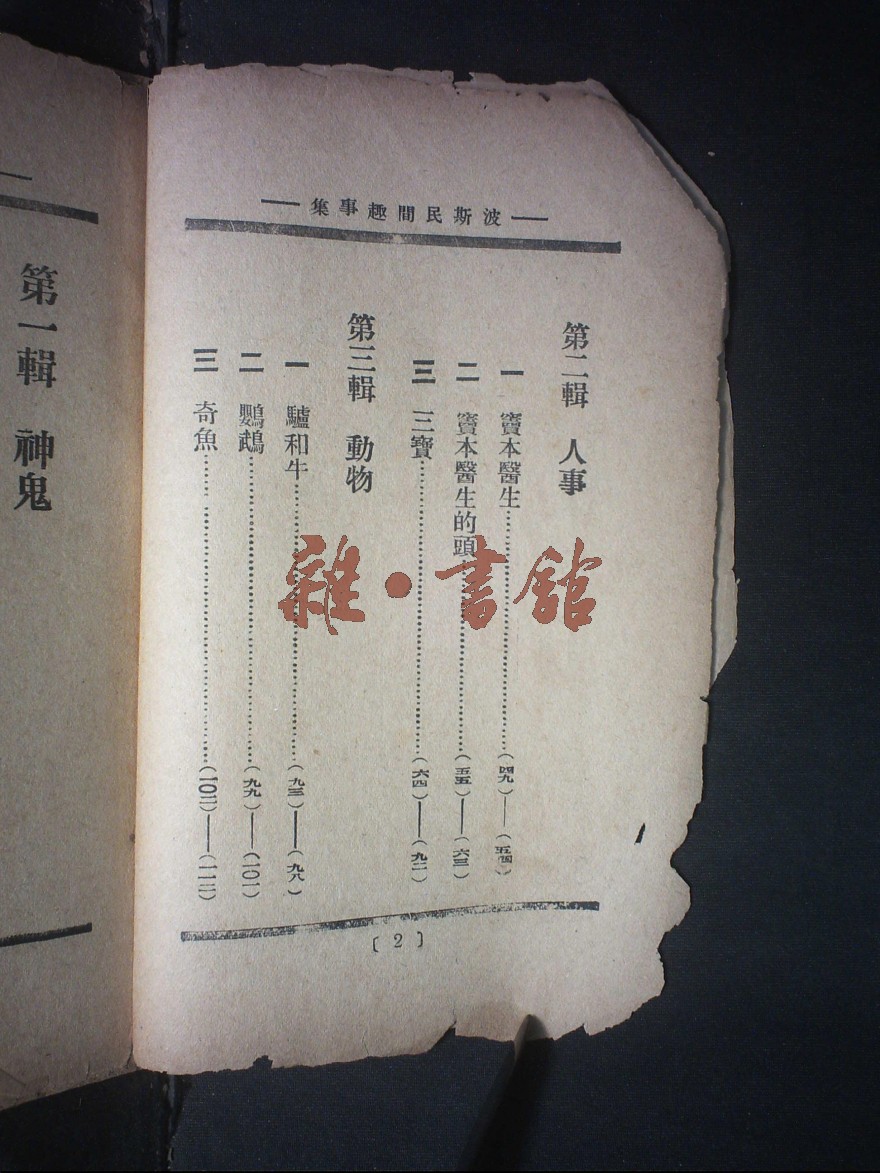 波斯民間趣事集
第二輯 人事
一 竇本醫生……(四九)——(五四)
二 竇本醫生的頭……(五五)——(六三)
三 三寶……(六四)——(九二)
第三輯 動物
一 驢和牛……(九三)——(九八)
二 鸚鵡……(九九)——(一〇一)
三 奇魚……(一〇二)——(一一二)
〔2〕
第一輯 神鬼
雜·書館